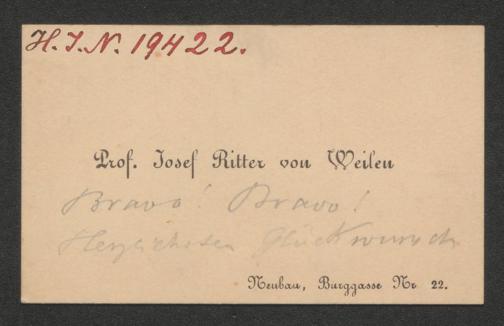 H.I.N. 19422.
Prof. Josef Ritter von Weilen
Bravo! Bravo!
Herzlichsten Glückwunsch
Neubau, Burggasse Nr. 22.